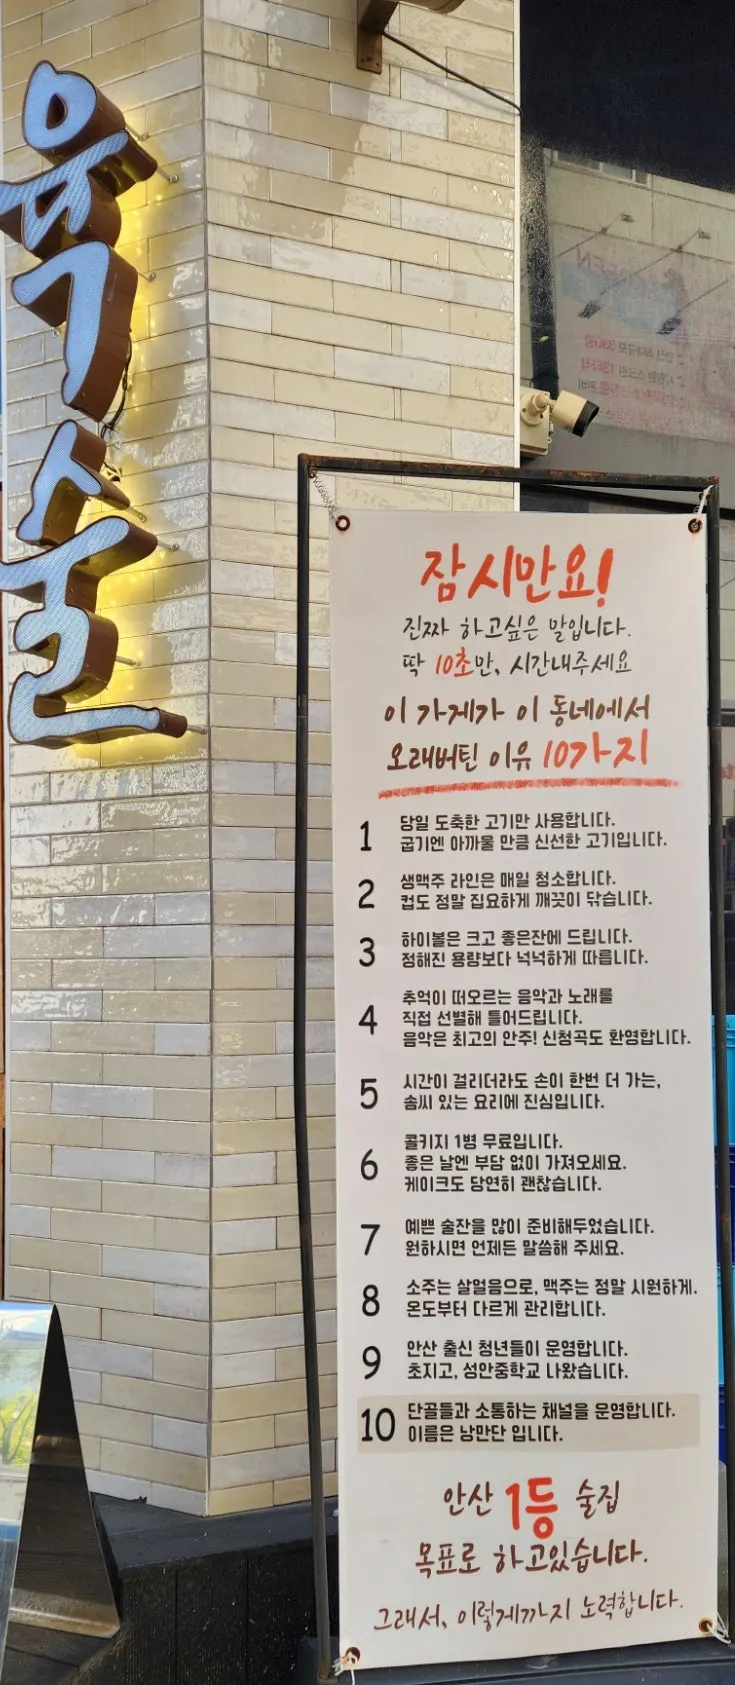 육술
잠시만요!
진짜 하고싶은 말입니다.
딱 10초만, 시간내주세요
이 가게가 이 동네에서
오래버틴 이유 10가지
1 당일 도축한 고기만 사용합니다.
굽기엔 아까울 만큼 신선한 고기입니다.
2 생맥주 라인은 매일 청소합니다.
컵도 정말 집요하게 깨끗이 닦습니다.
3 하이볼은 크고 좋은잔에 드립니다.
정해진 용량보다 넉넉하게 따릅니다.
4 추억이 떠오르는 음악과 노래를
직접 선별해 틀어드립니다.
음악은 최고의 안주! 신청곡도 환영합니다.
5 시간이 걸리더라도 손이 한번 더 가는,
솜씨 있는 요리에 진심입니다.
6 콜키지 1병 무료입니다.
좋은 날엔 부담 없이 가져오세요.
케이크도 당연히 괜찮습니다.
7 예쁜 술잔을 많이 준비해두었습니다.
원하시면 언제든 말씀해 주세요.
8 소주는 살얼음으로, 맥주는 정말 시원하게.
온도부터 다르게 관리합니다.
9 안산 출신 청년들이 운영합니다.
초지고, 성안중학교 나왔습니다.
10 단골들과 소통하는 채널을 운영합니다.
이름은 낭만단 입니다.
안산 1등 술집
목표로 하고있습니다.
그래서, 이렇게까지 노력합니다.